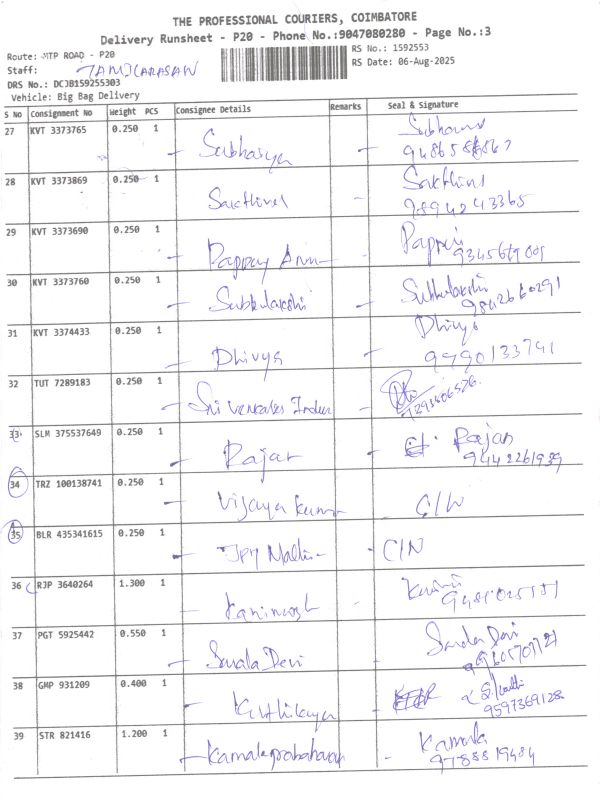 THE PROFESSIONAL COURIERS, COIMBATORE
Delivery Runsheet - P20 - Phone No.:9047080280 - Page No.:3
Route: MTP ROAD - P20 RS No.: 1592553
Staff: TAMILARASAN RS Date: 06-Aug-2025
DRS No.: DCJB159255303
Vehicle: Big Bag Delivery
S No Consignment No Weight PCS Consignee Details Remarks Seal & Signature
27 KVT 3373765 0.250 1
28 KVT 3373869 0.250 1 Sakthivel - Sakthivel
9894243365
29 KVT 3373690 0.250 1 Pappay -
30 KVT 3373760 0.250 1 Subbulakshi - Subbulakshi
9842660291
31 KVT 3374433 0.250 1 - Dhivya - Dhivya
9990133741
32 TUT 7289183 0.250 1 - Sri
33 SLM 375537649 0.250 1 - Rajan - Rajan
9442261939
34 TRZ 100138741 0.250 1 - Vijaya Kumar - C/N
35 BLR 435341615 0.250 1 - - C/N
36 RJP 3640264 1.300 1 -
37 PGT 5925442 0.550 1 - Sarala Devi - Sarala Devi
38 GMP 931209 0.400 1 -
9597369128
39 STR 821416 1.200 1 - Kamalaprabaharan - Kamala
9788819484